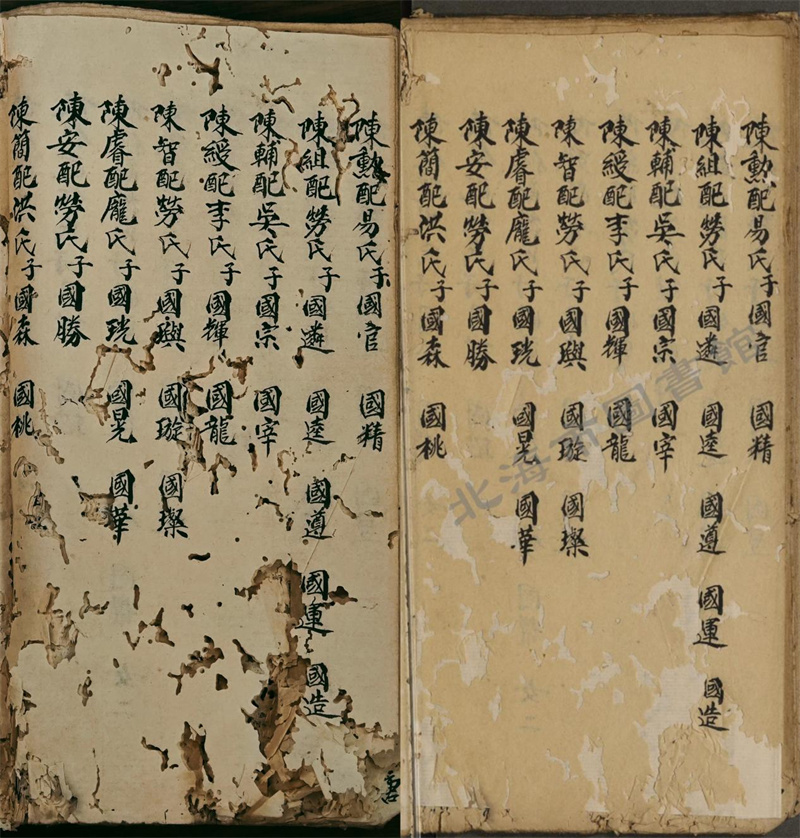 陳勲配易氏子國官 國精
陳組配勞氏子國遴 國逵 國遵 國運 國造
陳輔配吳氏子國宗 國宰
陳綬配李氏子國輝 國龍
陳智配勞氏子國璵 國璇 國璨
陳睿配龐氏子國珖 國晃 國華
陳安配勞氏子國勝
陳簡配洪氏子國森 國桃
陳勲配易氏子國官 國精
陳組配勞氏子國遴 國逵 國遵 國運 國造
陳輔配吳氏子國宗 國宰
陳綬配李氏子國輝 國龍
陳智配勞氏子國璵 國璇 國璨
陳睿配龐氏子國珖 國晃 國華
陳安配勞氏子國勝
陳簡配洪氏子國森 國桃
北海市圖書館